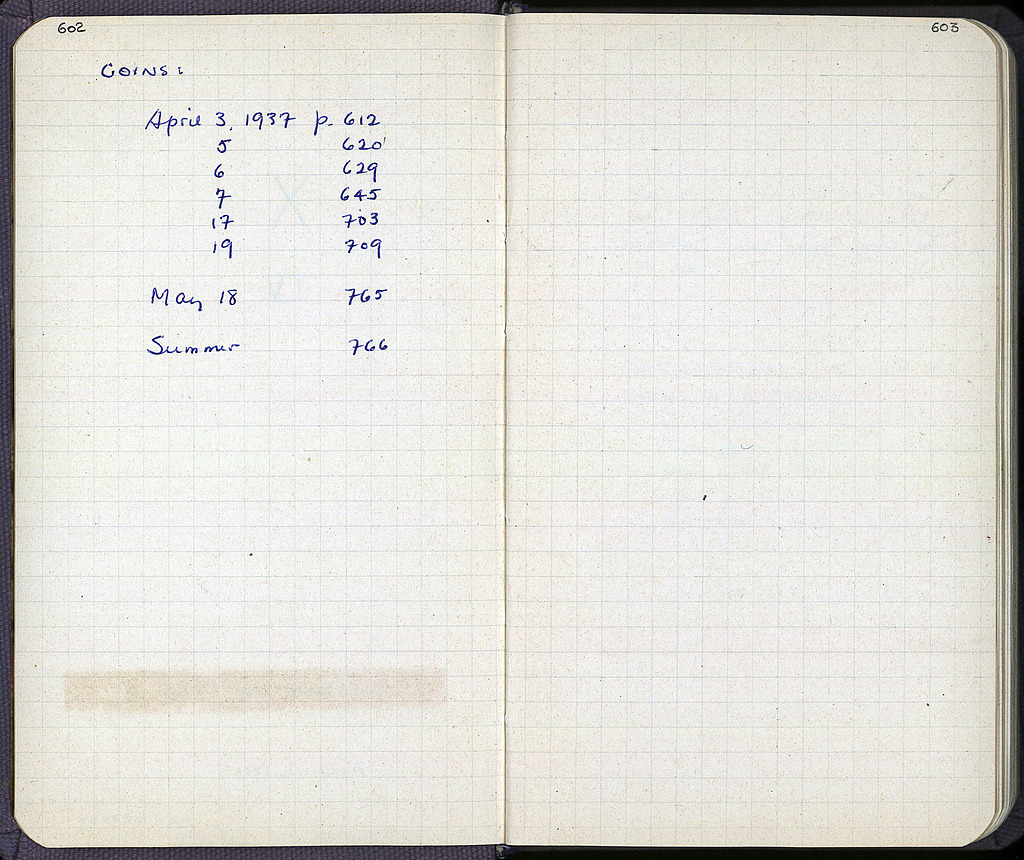 602
COINS:
April 3, 1937 p. 612
5 620
6 629
7 645
17 703
19 709
May 18 765
Summer 766
603